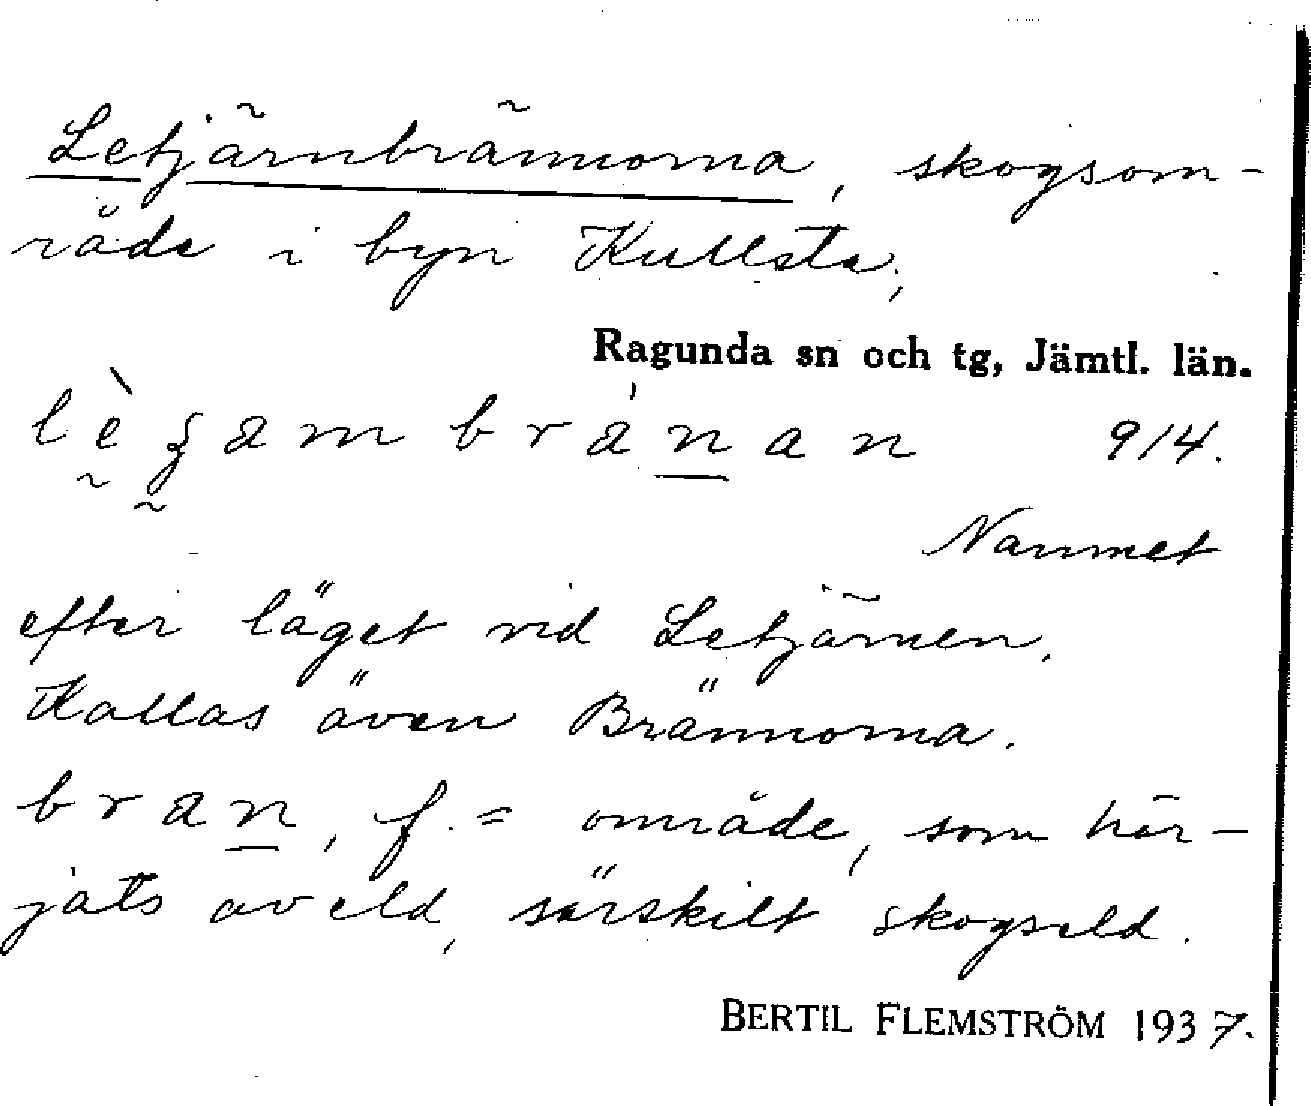 Letjärnbrännorna, skogsom-
råde i byn Kullsta,
Ragunda sn och tg, Jämtl. län.
914.
Namnet
efter läget vid Letjärnen.
Kallas även Brännorna.
bran, f. = område, som här-
jats av eld, särskilt skogseld.
BERTIL FLEMSTRÖM 1937.